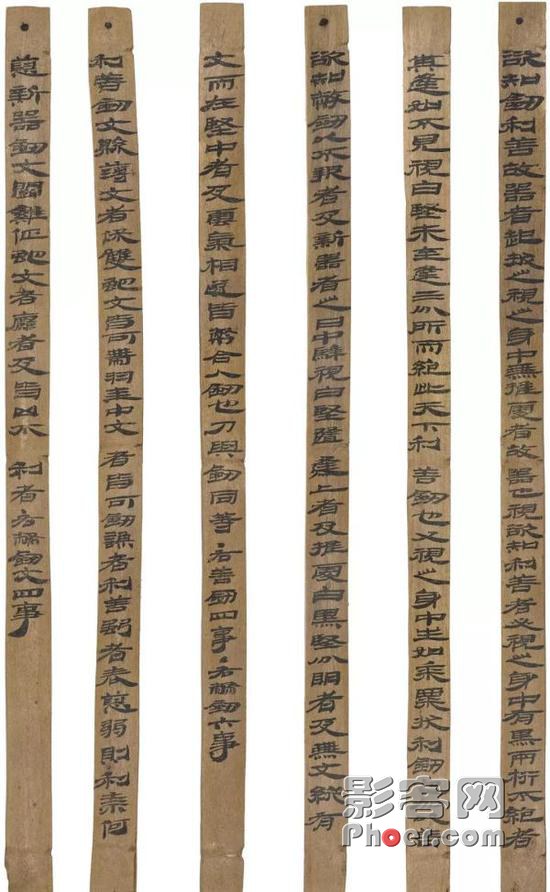 欲知劍利善故器者起拔之視之身中無推處者故器也視欲知利善者必視之身中有黑兩桁不絕者
其逢如不見視白堅未至逢三分所而絕此天下利善劍也又視之身中生如黍粟狀利劍
欲知幣劍以不報者及新器者之日中騂視白堅隨逢上者及推處白黑堅分明者及無文縱有
文而在堅中者及雲氣相遂皆幣合人劍也刀與劍同等·右善劍四事·右幣劍六事
利善劍文縣薄文者保雙蛇文皆可帶羽圭中文者皆可劍謙者利善強者表恿弱則利奈何
恿新器劍文鬭雞征蛇文者麤者及皆凶不利者·右幣劍文四事
影客网
Phoer.com